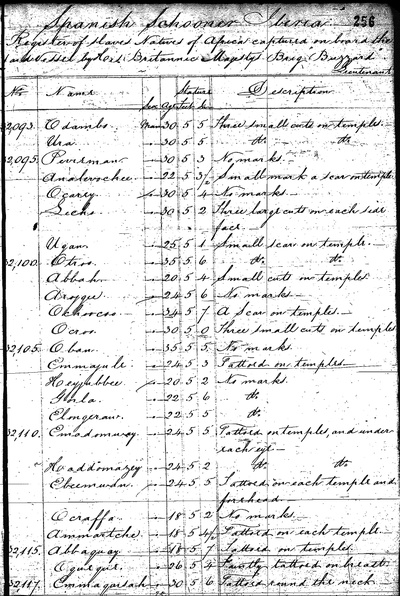 Spanish Schooner Iberia 256
Register of Slaves Natives of Africa captured on board the
said Vessel by Her Britannic Majesty's Brig "Buzzard"
Lieutenant
No. Name Stature Description
Sex Age Feet In
32,093. Odambo. Man 30 5 5 Three small cuts on temples.
Ura. 30 5 5 do. do.
32,095. 30 5 3 No marks.
22 5 3½ Small mark a scar on temple
Ocarey 30 5 4 No marks
30 5 2 Three large cuts on each side
face.
Ugan. 25 5 1 Small scar on temple.
32,100. Otroo. 35 5 6 do. do.
Abbah. 20 5 4 Small cuts on temples
Aroyue 24 5 6 No marks
Ochoocoo 34 5 7 A Scar on temples
Ocroo. 30 5 0 Three small cuts on temples
32,105. Oban. 35 5 5. No mark
Emmajule. 24 5 3 Tattoed on temples
Heyubbee. 20 5 2 No marks.
22 5 6 do.
Elongeraw. 22 5 5 do.
32,110. Emodomavoy. 24 5 5 Tattoed on temples, and under
each eye
Haddomazey 24 5 2 do. do.
24 5 5 Tattoed on each temple and
forehead
Ocraffa. 18 5 2 No marks
Ammartche. 18 5 4½ Tattoed on each temple
32,115. Abbaguay. 18 5 7 Tattoed on temples
Oguegue. 26 5 4 Faintly tattoed on breast
32,117. 30 5 6 Tattoed round the neck